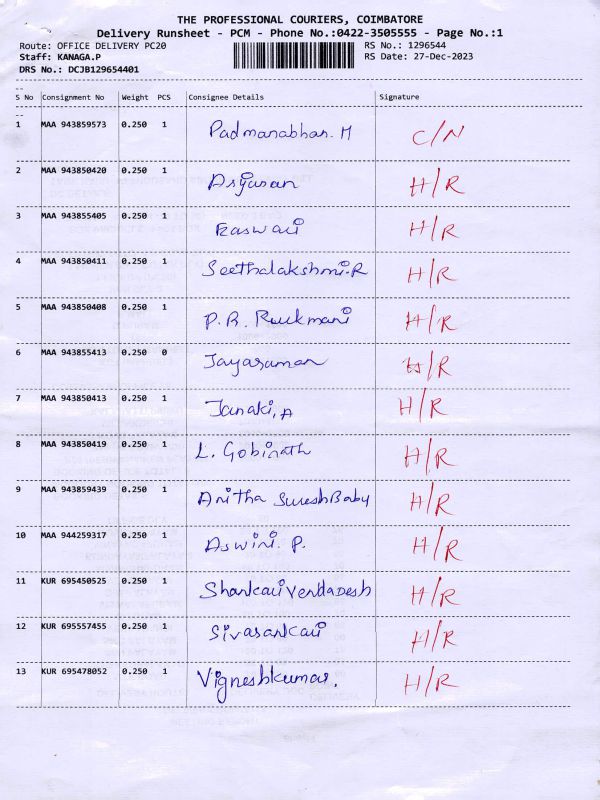 THE PROFESSIONAL COURIERS, COIMBATORE
Delivery Runsheet - PCM - Phone No.:0422-3505555 - Page No.:1
Route: OFFICE DELIVERY PC20 RS No.: 1296544
Staff: KANAGA.P RS Date: 27-Dec-2023
DRS No.: DCJB129654401
--
S No Consignment No Weight PCS Consignee Details Signature
--
1 MAA 943859573 0.250 1 Padmanabhan. M C/N
2 MAA 943850420 0.250 1 H/R
3 MAA 943855405 0.250 1 Easwari H/R
4 MAA 943850411 0.250 1 Seethalakshmi.R H/R
5 MAA 943850408 0.250 1 P.R. Rukmani H/R
6 MAA 943855413 0.250 0 Jayaraman H/R
7 MAA 943850413 0.250 1 Janaki, A H/R
8 MAA 943850419 0.250 1 L. Gobinath H/R
9 MAA 943859439 0.250 1 Anitha SureshBaby H/R
10 MAA 944259317 0.250 1 Aswini. P. H/R
11 KUR 695450525 0.250 1 Shankari Venkadesh H/R
12 KUR 695557455 0.250 1 Sivasankari H/R
13 KUR 695478052 0.250 1 Vigneshkumar. H/R